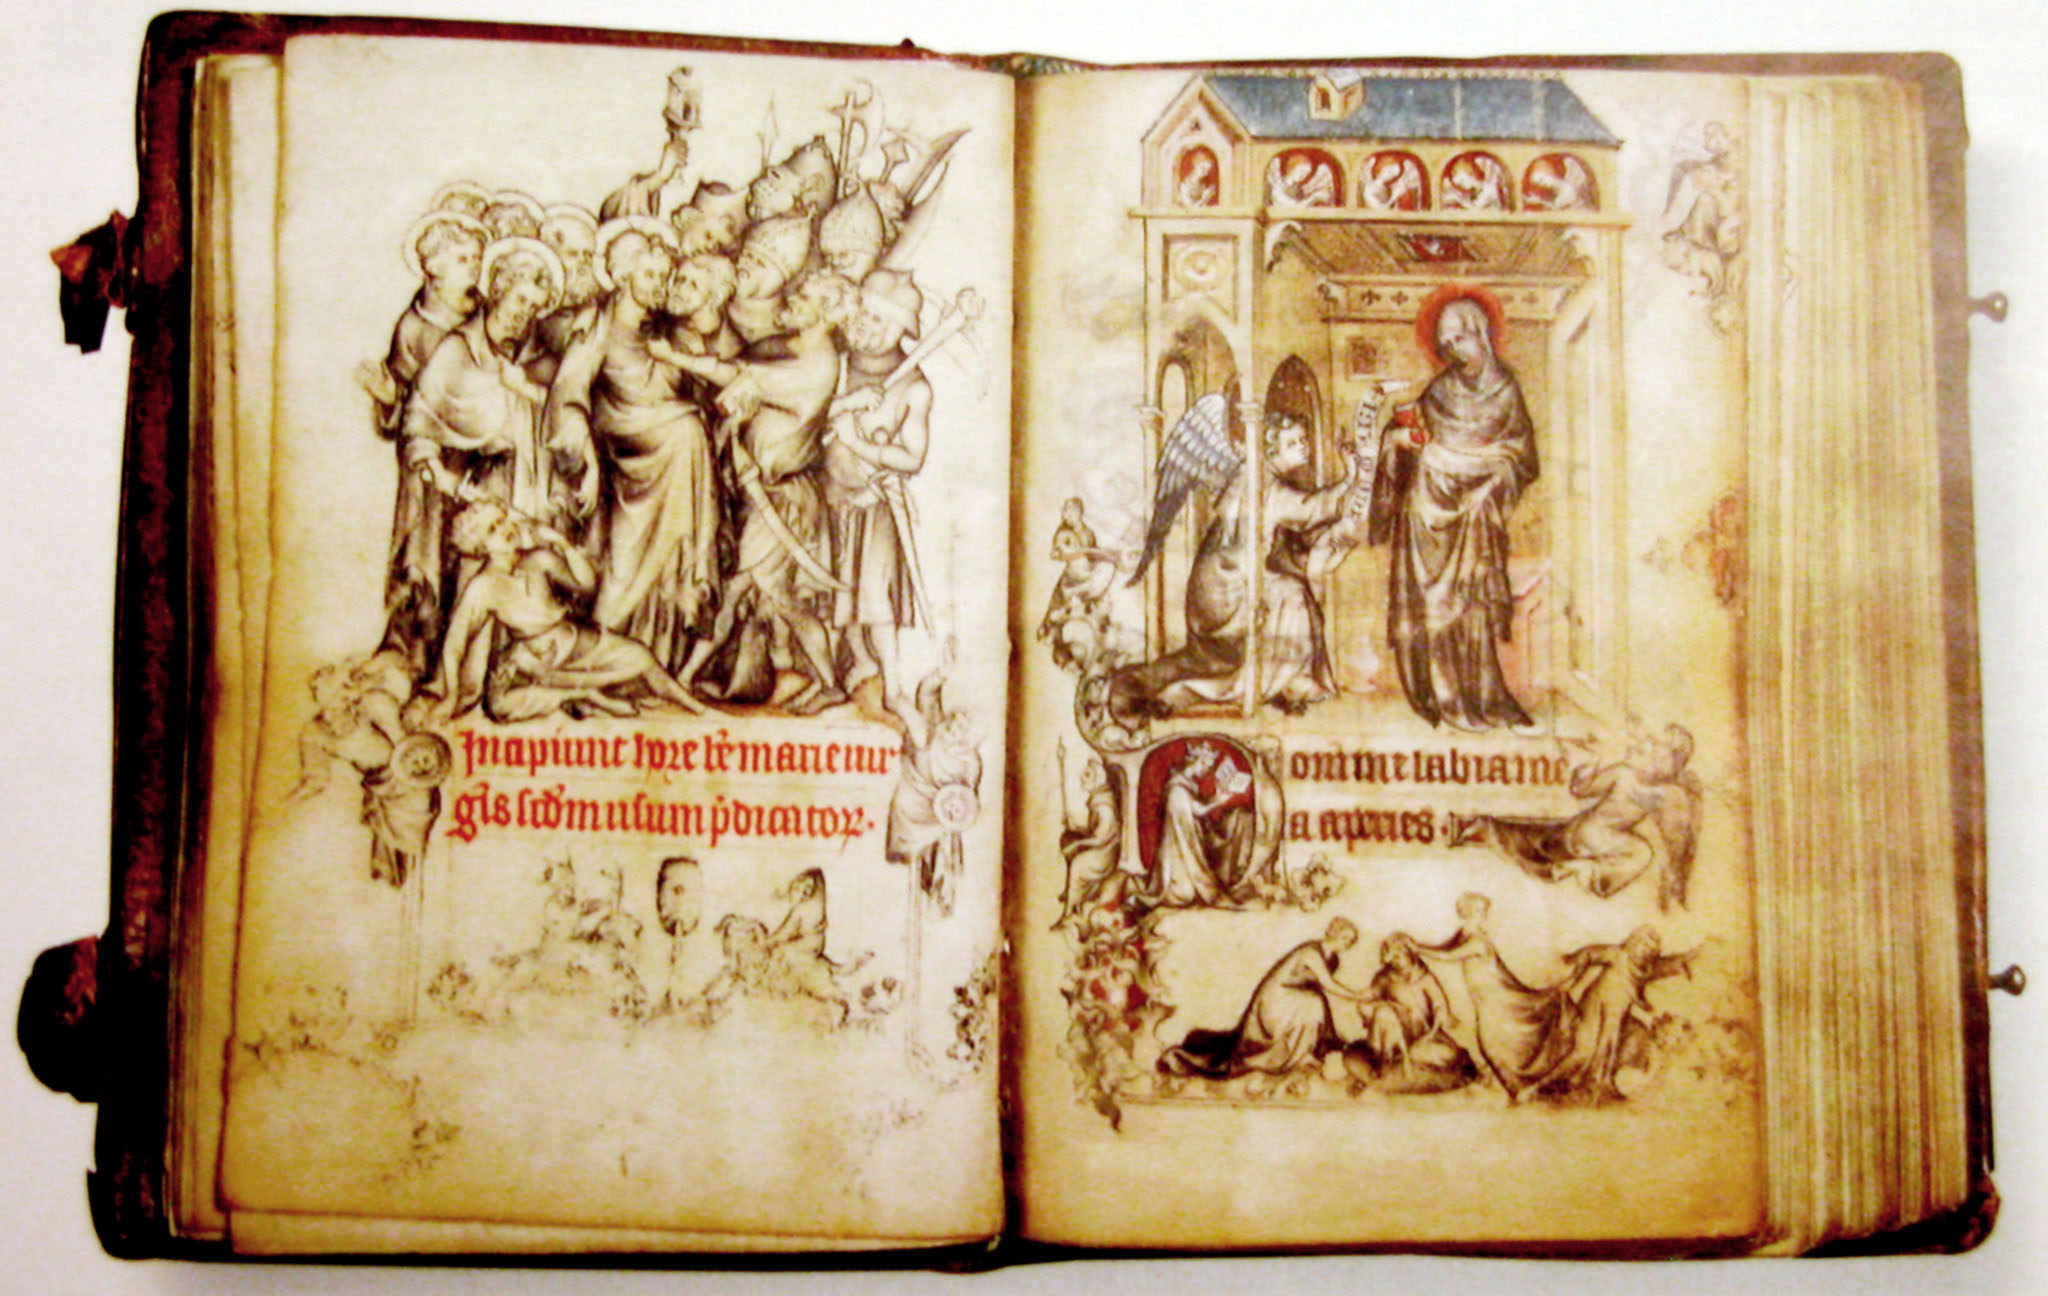 Incipiunt hore be marie uir
ginis scdm usum pdicatorꝝ.
omine labia me
a aperies.